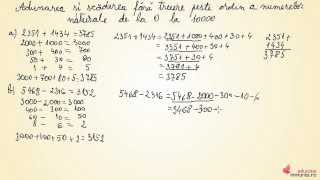 Adunarea si scaderea fără trecere peste ordin a numerelor
naturale de la 0 la 10000
a) 2351 + 1434 = 3785
2000 + 1000 = 3000
300 + 400 = 700
50 + 30 = 80
1 + 4 = 5
3000 + 700 + 80 + 5 = 3785
b) 5468 - 2316 = 3152
5000 - 2000 = 3000
400 - 300 = 100
60 - 10 = 50
8 - 6 = 2
3000 + 100 + 50 + 2 = 3152
2351 + 1434 = 2351 + 1000 + 400 + 30 + 4
= 3351 + 400 + 30 + 4
= 3751 + 30 + 4
= 3781 + 4
= 3785
5468 - 2316 = 5468 - 2000 - 300 - 10 - 6
= 3468 - 300 -
2351 +
1434
3785